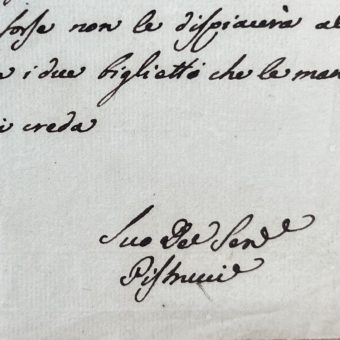 forse non le dispiacerà al
i due biglietti che le man
i creda
Suo De Ser.e
Pistrucci